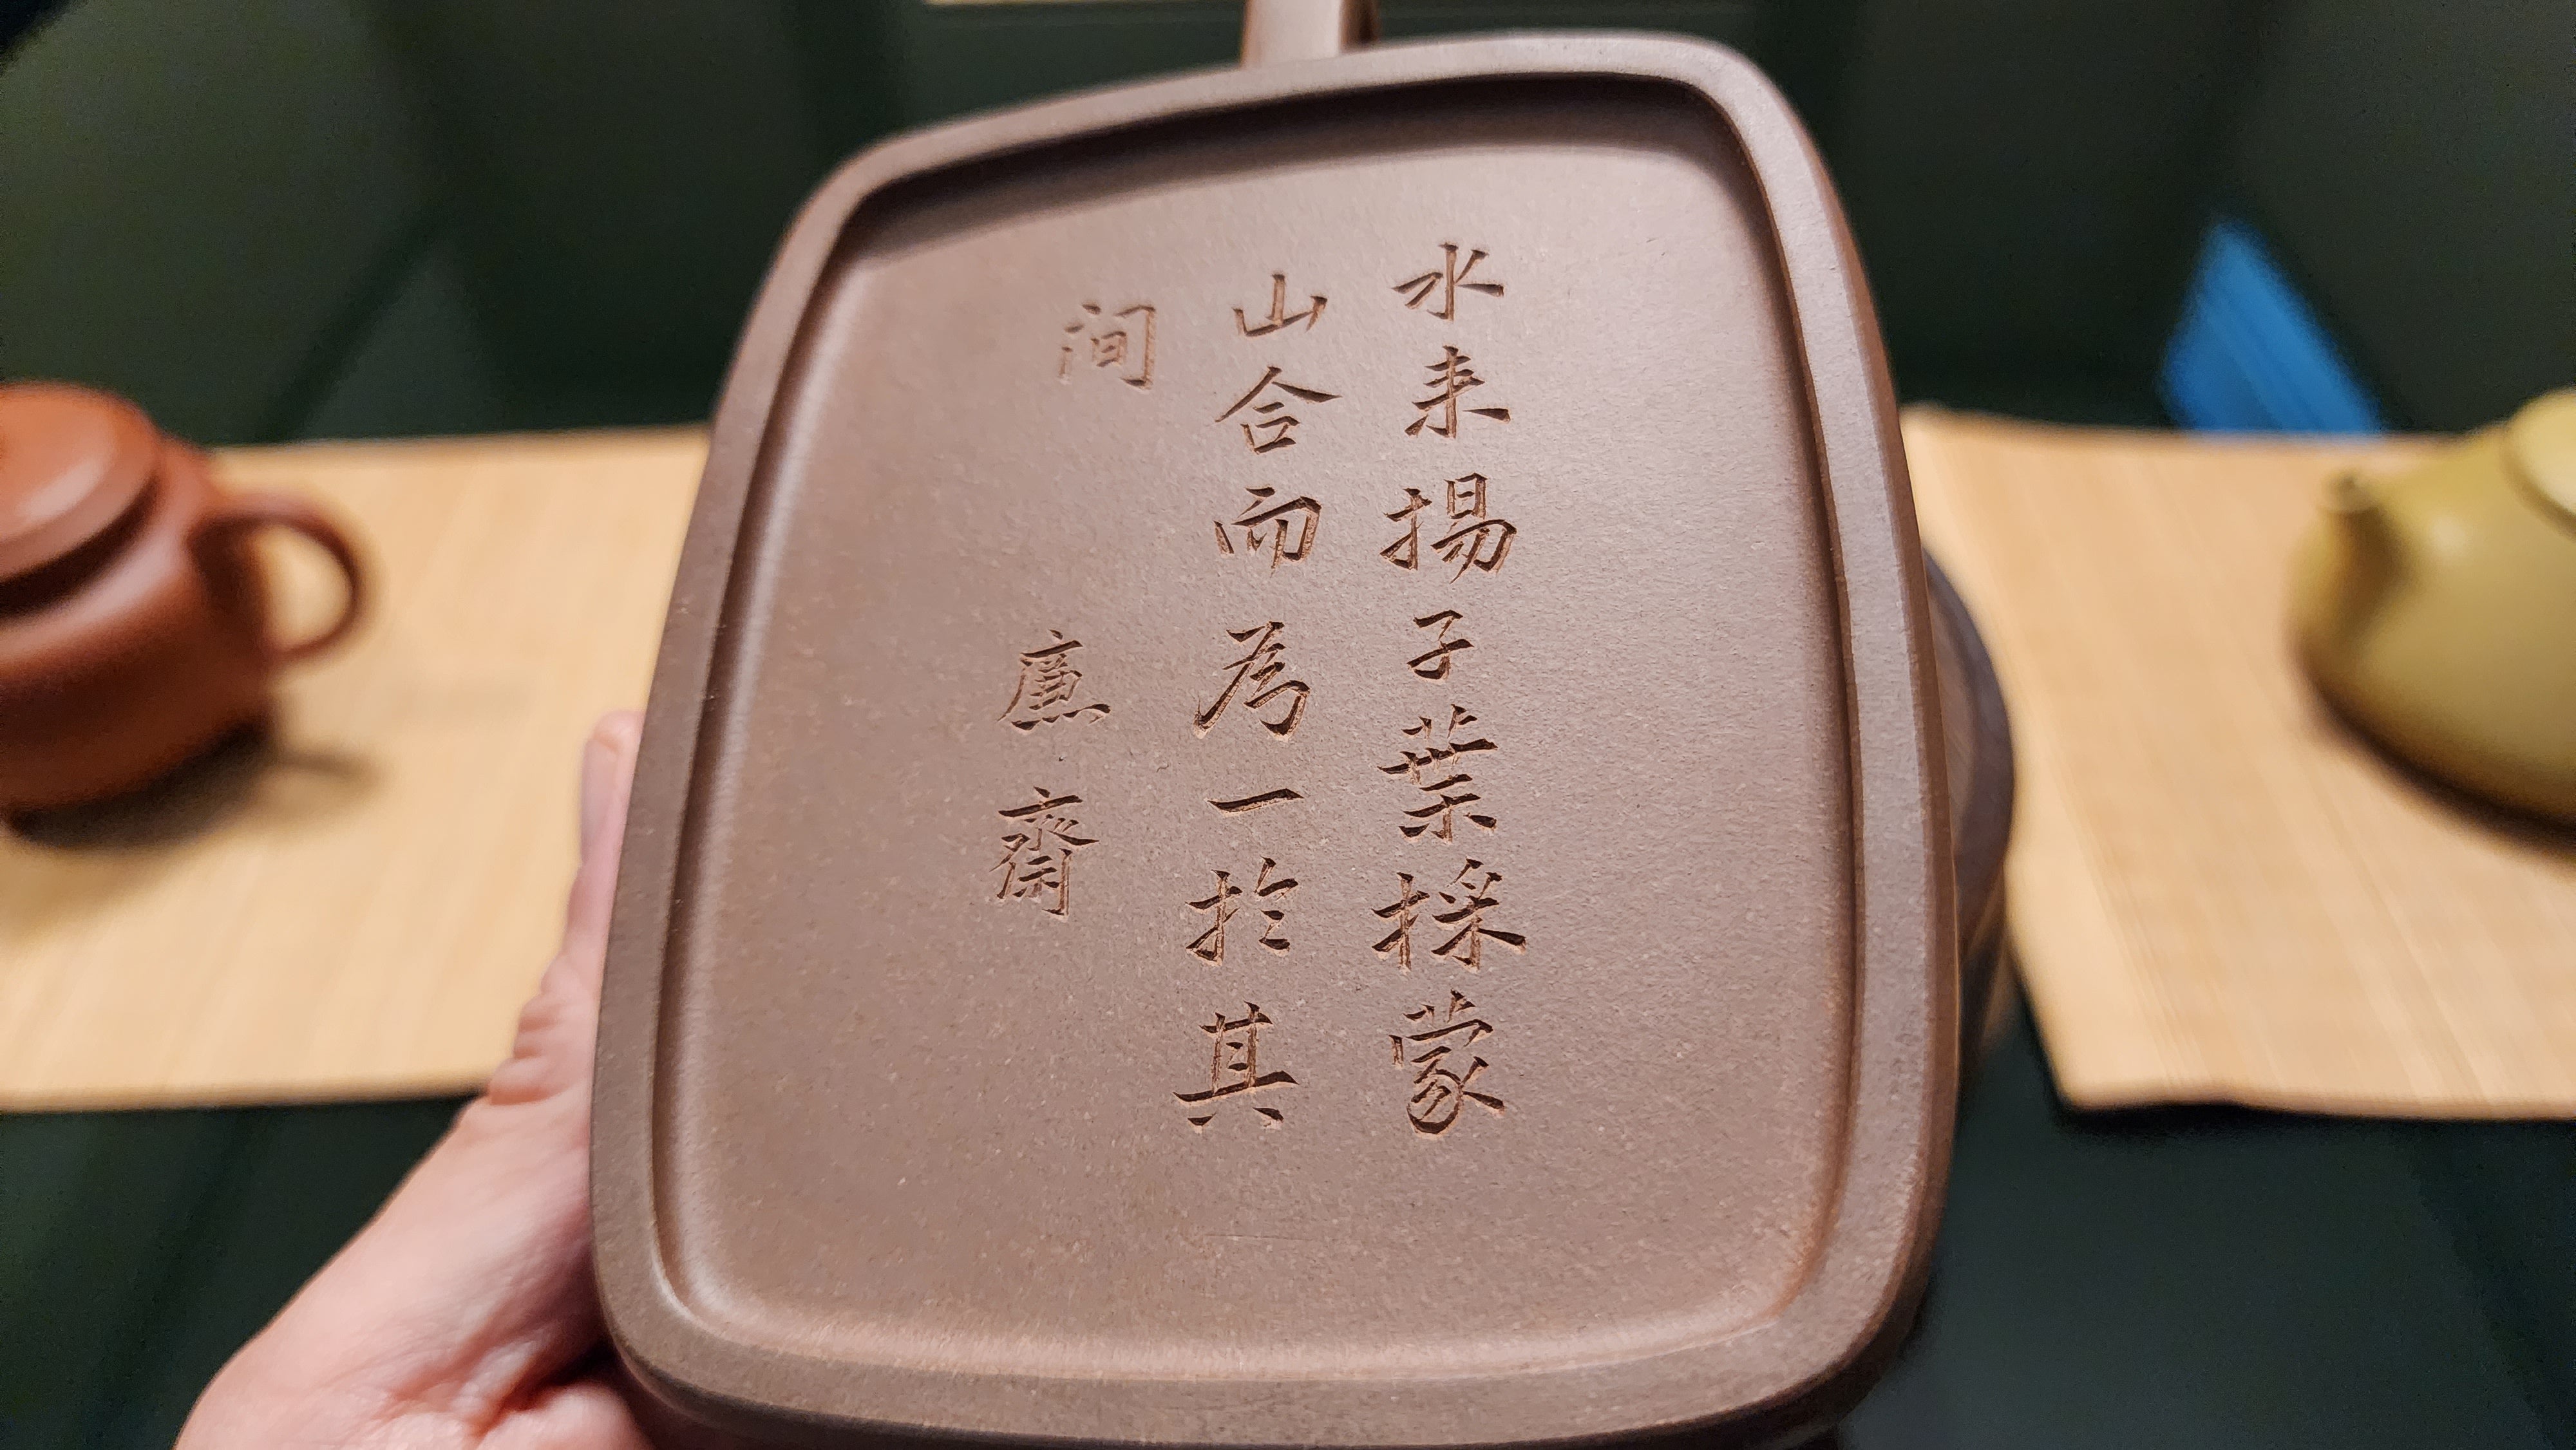 水来揚子葉採蒙
山合而為一於其
間
廌齋